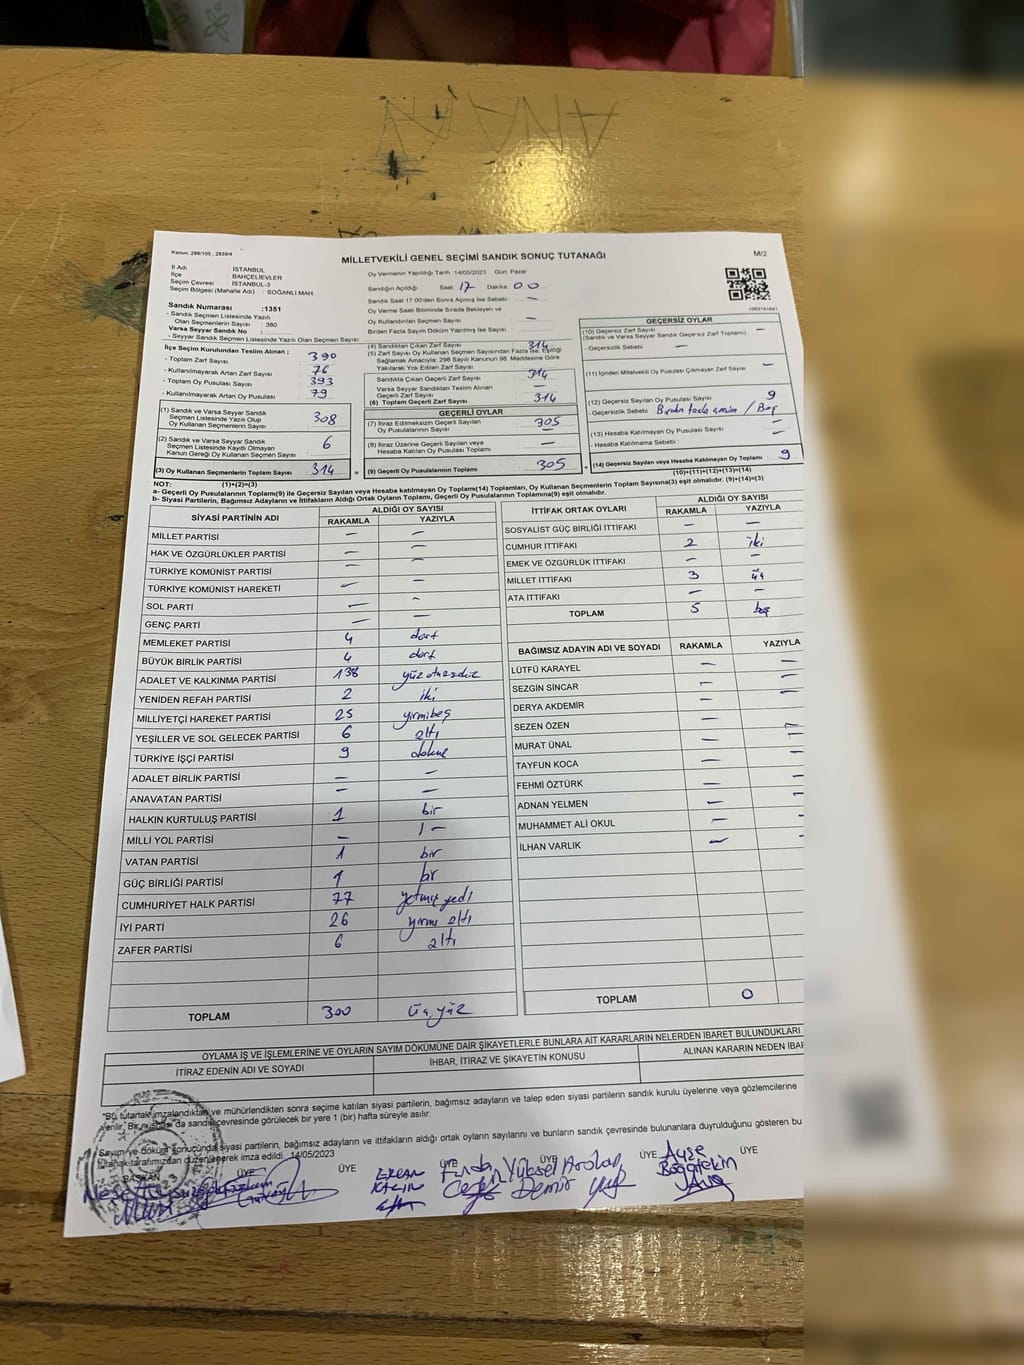 Kanun: 298/105 , 2839/4
MİLLETVEKİLİ GENEL SEÇİMİ SANDIK SONUÇ TUTANAĞI
M/2
İl Adı : İSTANBUL
İlçe : BAHÇELİEVLER
Seçim Çevresi : İSTANBUL-3
Seçim Bölgesi (Mahalle Adı) : SOĞANLI MAH.
Oy Vermenin Yapıldığı Tarih :14/05/2023 Gün: Pazar
Sandığın Açıldığı Saat 17 Dakika 00
Sandık Saat 17:00'den Sonra Açılmış İse Sebebi : —
Oy Verme Saati Bitiminde Sırada Bekleyen ve
Oy Kullandırılan Seçmen Sayısı : —
Birden Fazla Sayım Döküm Yapılmış İse Sayısı
Sandık Numarası :1351
- Sandık Seçmen Listesinde Yazılı
Olan Seçmenlerin Sayısı : 380
Varsa Seyyar Sandık No :
- Seyyar Sandık Seçmen Listesinde Yazılı Olan Seçmen Sayısı:
İlçe Seçim Kurulundan Teslim Alınan ;
- Toplam Zarf Sayısı 390
- Kullanılmayarak Artan Zarf Sayısı 76
- Toplam Oy Pusulası Sayısı 393
- Kullanılmayarak Artan Oy Pusulası 79
(1) Sandık ve Varsa Seyyar Sandık
Seçmen Listesinde Yazılı Olup
Oy Kullanan Seçmenlerin Sayısı 308
(2) Sandık ve Varsa Seyyar Sandık
Seçmen Listesinde Kayıtlı Olmayan
Kanun Gereği Oy Kullanan Seçmen Sayısı 6
(3) Oy Kullanan Seçmenlerin Toplam Sayısı 314
(1)+(2)=(3)
(4) Sandıktan Çıkan Zarf Sayısı 314
(5) Zarf Sayısı Oy Kullanan Seçmen Sayısından Fazla İse, Eşitliği
Sağlamak Amacıyla; 298 Sayılı Kanunun 98. Maddesine Göre
Yakılarak Yok Edilen Zarf Sayısı
Sandıkta Çıkan Geçerli Zarf Sayısı 314
Varsa Seyyar Sandıktan Teslim Alınan
Geçerli Zarf Sayısı —
(6) Toplam Geçerli Zarf Sayısı 314
GEÇERLİ OYLAR
(7) İtiraz Edilmeksizin Geçerli Sayılan
Oy Pusulalarının Sayısı 305
(8) İtiraz Üzerine Geçerli Sayılan veya
Hesaba Katılan Oy Pusulası Toplamı —
= (9) Geçerli Oy Pusulalarının Toplamı 305
GEÇERSİZ OYLAR
(10) Geçersiz Zarf Sayısı —
(Sandık ve Varsa Seyyar Sandık Geçersiz Zarf Toplamı)
- Geçersizlik Sebebi —
(11) İçinden Milletvekili Oy Pusulası Çıkmayan Zarf Sayısı —
(12) Geçersiz Sayılan Oy Pusulası Sayısı 9
- Geçersizlik Sebebi / Boş
(13) Hesaba Katılmayan Oy Pusulası Sayısı —
- Hesaba Katılmama Sebebi —
+ (14) Geçersiz Sayılan veya Hesaba Katılmayan Oy Toplamı 9
(10)+(11)+(12)+(13)=(14)
NOT:
a- Geçerli Oy Pusulalarının Toplamı(9) ile Geçersiz Sayılan veya Hesaba Katılmayan Oy Toplamı(14) Toplamları, Oy Kullanan Seçmenlerin Toplam Sayısına(3) eşit olmalıdır. (9)+(14)=(3)
b- Siyasi Partilerin, Bağımsız Adayların ve İttifakların Aldığı Ortak Oyların Toplamı, Geçerli Oy Pusulalarının Toplamına(9) eşit olmalıdır.
SİYASİ PARTİNİN ADI ALDIĞI OY SAYISI
RAKAMLA YAZIYLA
MİLLET PARTİSİ — —
HAK VE ÖZGÜRLÜKLER PARTİSİ — —
TÜRKİYE KOMÜNİST PARTİSİ — —
TÜRKİYE KOMÜNİST HAREKETİ — —
SOL PARTİ — —
GENÇ PARTİ — —
MEMLEKET PARTİSİ 4 dört
BÜYÜK BİRLİK PARTİSİ 4 dört
ADALET VE KALKINMA PARTİSİ 138 yüz otuzsekiz
YENİDEN REFAH PARTİSİ 2 iki
MİLLİYETÇİ HAREKET PARTİSİ 25 yirmibeş
YEŞİLLER VE SOL GELECEK PARTİSİ 6 altı
TÜRKİYE İŞÇİ PARTİSİ 9 dokuz
ADALET BİRLİK PARTİSİ — —
ANAVATAN PARTİSİ — —
HALKIN KURTULUŞ PARTİSİ 1 bir
MİLLİ YOL PARTİSİ — —
VATAN PARTİSİ 1 bir
GÜÇ BİRLİĞİ PARTİSİ 1 bir
CUMHURİYET HALK PARTİSİ 77 yetmiş yedi
İYİ PARTİ 26 yirmi altı
ZAFER PARTİSİ 6 altı
TOPLAM 300 üç yüz
İTTİFAK ORTAK OYLARI ALDIĞI OY SAYISI
RAKAMLA YAZIYLA
SOSYALİST GÜÇ BİRLİĞİ İTTİFAKI — —
CUMHUR İTTİFAKI 2 iki
EMEK VE ÖZGÜRLÜK İTTİFAKI — —
MİLLET İTTİFAKI 3 üç
ATA İTTİFAKI — —
TOPLAM 5 beş
BAĞIMSIZ ADAYIN ADI VE SOYADI RAKAMLA YAZIYLA
LÜTFÜ KARAYEL — —
SEZGİN SİNCAR — —
DERYA AKDEMİR — —
SEZEN ÖZEN —
MURAT ÜNAL — —
TAYFUN KOCA — —
FEHMİ ÖZTÜRK — —
ADNAN YELMEN — —
MUHAMMET ALİ OKUL — —
İLHAN VARLIK — —
TOPLAM 0
OYLAMA İŞ VE İŞLEMLERİNE VE OYLARIN SAYIM DÖKÜMÜNE DAİR ŞİKAYETLERLE BUNLARA AİT KARARLARIN NELERDEN İBARET BULUNDUKLARI
İTİRAZ EDENİN ADI VE SOYADI İHBAR, İTİRAZ VE ŞİKAYETİN KONUSU ALINAN KARARIN NEDEN İBAR
"Bu tutanak imzalandıktan ve mühürlendikten sonra seçime katılan siyasi partilerin, bağımsız adayların ve talep eden siyasi partilerin sandık kurulu üyelerine veya gözlemcilerine
verilir. Bir nüshası da sandık çevresinde görülecek bir yere 1 (bir) hafta süreyle asılır.
Sayım ve döküm sonucunda siyasi partilerin, bağımsız adayların ve ittifakların aldığı ortak oyların sayılarını ve bunların sandık çevresinde bulunanlara duyrulduğunu gösteren bu
tutanak tarafımızdan düzenlenerek imza edildi. 14/05/2023
BAŞKAN ÜYE ÜYE ÜYE ÜYE ÜYE ÜYE
Funda Yüksel Arslan Ayşe
Demir